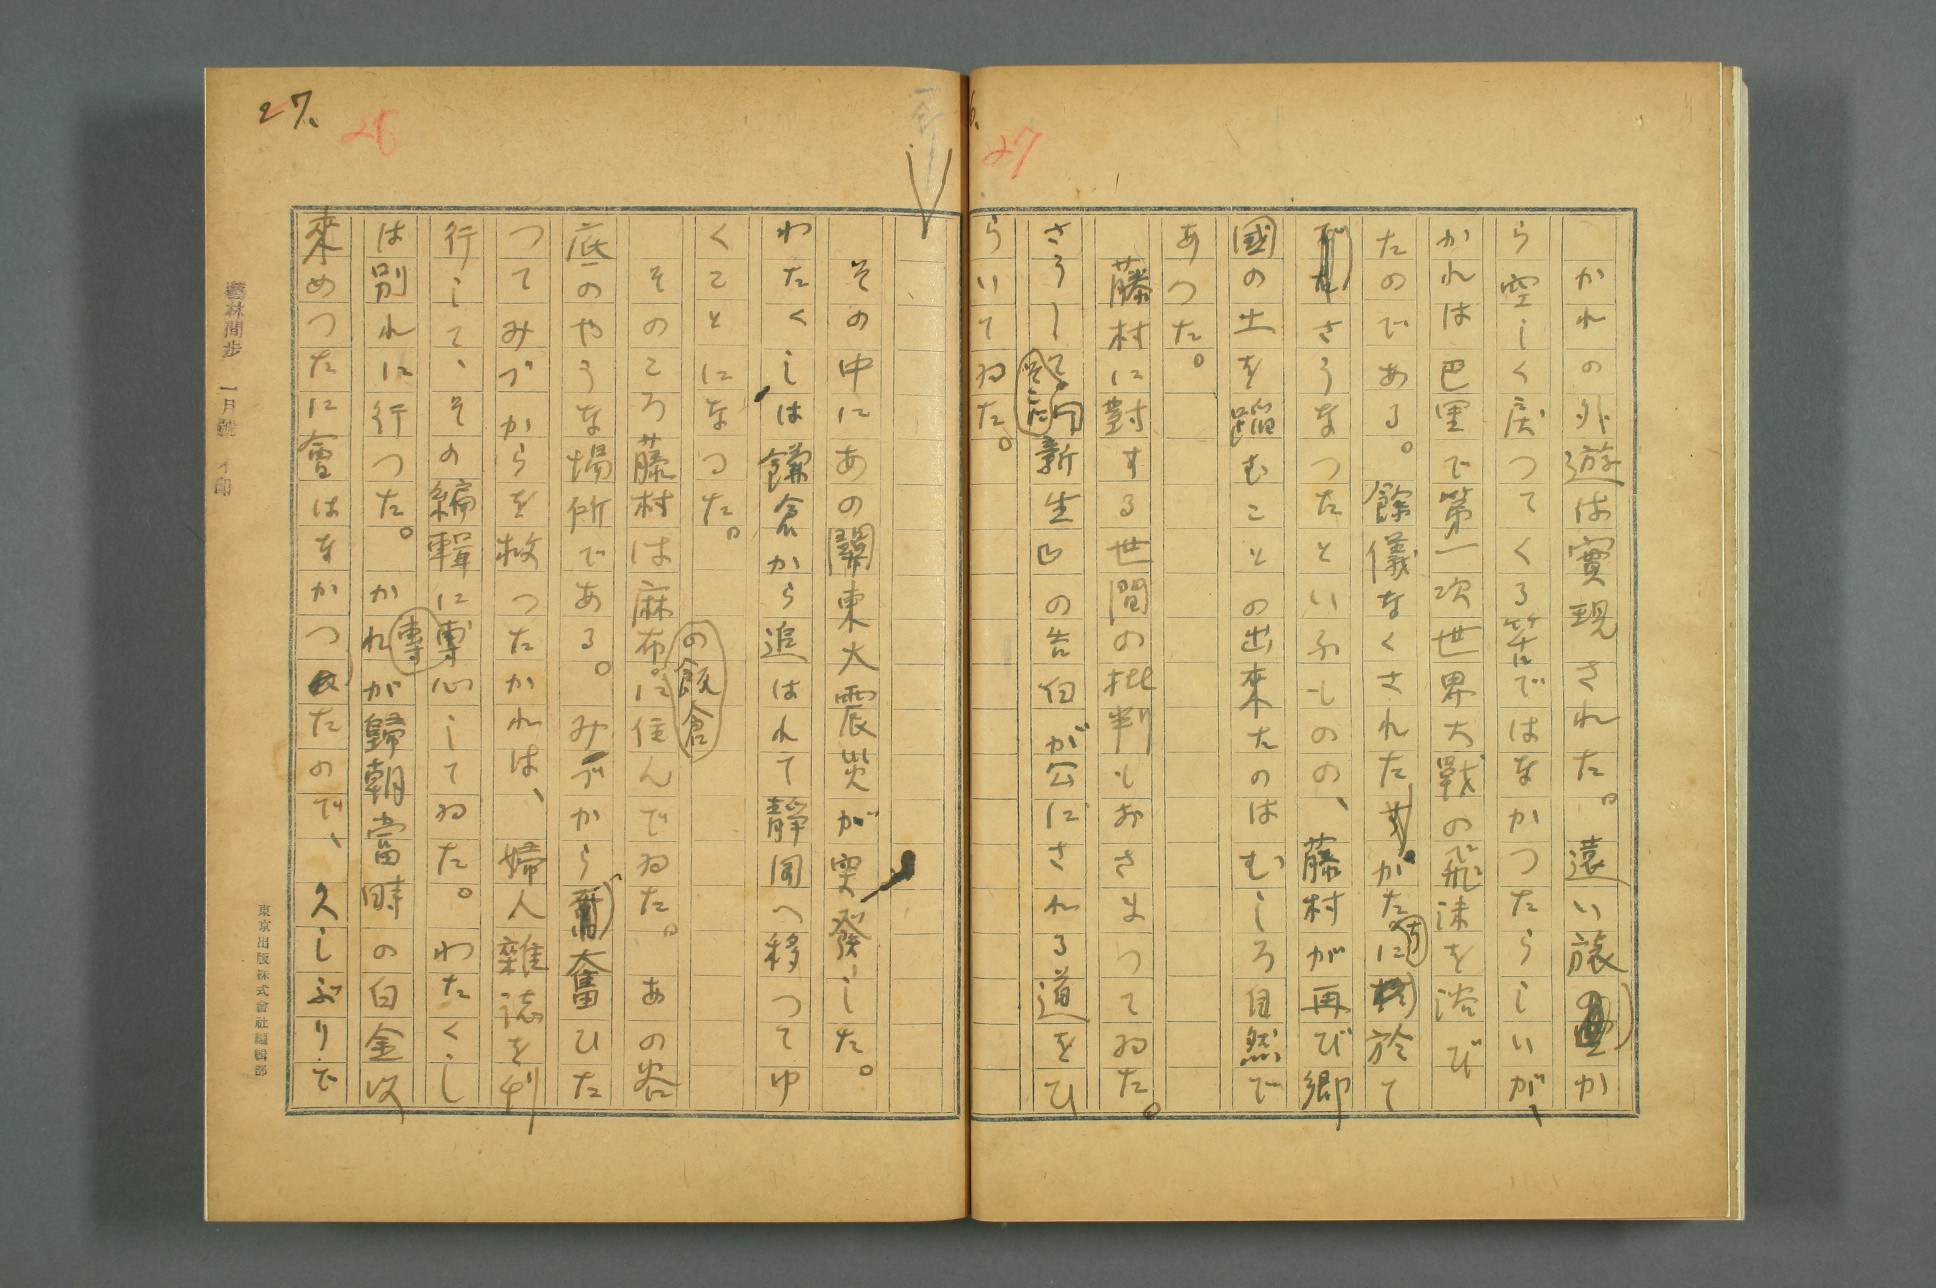 27
かれの外遊は實現された。遠い旅か
ら空しく戻つてくる筈ではなかつたらしいが、
かれは巴里で第一次世界大戰の飛沫を浴び
たのである。餘儀なくされたかたちに於て
さうなつたといふものの、藤村が再び郷
國の土を踏むことの出來たのはむしろ自然で
あつた。
藤村に對する世間の批判もおさまつてゐた。
さうして
そこに
新生の告白が公にされる道をひ
らいてゐた。
27.
26
その中にあの關東大震災が突發した。
わたくしは鎌倉から追はれて靜岡へ移つてゆ
くことになつた。
の飯倉
そのころ藤村は麻布に住んでゐた。あの谷
底のやうな場所である。みづから奮ひた
つてみづからを救つたかれは、婦人雜誌を刊
行して、その編輯に專心してゐた。わたくし
專
は別れに行つた。かれが歸朝當時の白金以
來めつたに會はなかつたので、久しぶりで
藝林間歩 一月號
東京出版株式會社編輯部